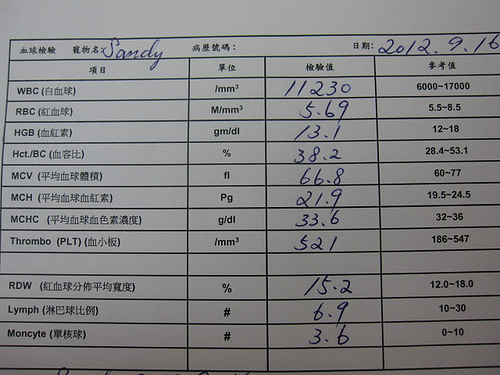 血球檢驗 寵物名:Sandy 病歷號碼: 日期: 2012.9.16
項目 單位 檢驗值 參考值
WBC (白血球) /mm³ 11230 6000~17000
RBC (紅血球) M/mm³ 5.69 5.5~8.5
HGB (血紅素) gm/dl 13.1 12~18
Hct./BC (血容比) % 38.2 28.4~53.1
MCV (平均血球體積) fl 66.8 60~77
MCH (平均血球血紅素) Pg 21.9 19.5~24.5
MCHC (平均血球血色素濃度) g/dl 33.6 32~36
Thrombo (PLT) (血小板) /mm³ 521 186~547
RDW (紅血球分佈平均寬度) % 15.2 12.0~18.0
Lymph (淋巴球比例) # 6.9 10~30
Moncyte (單核球) # 3.6 0~10